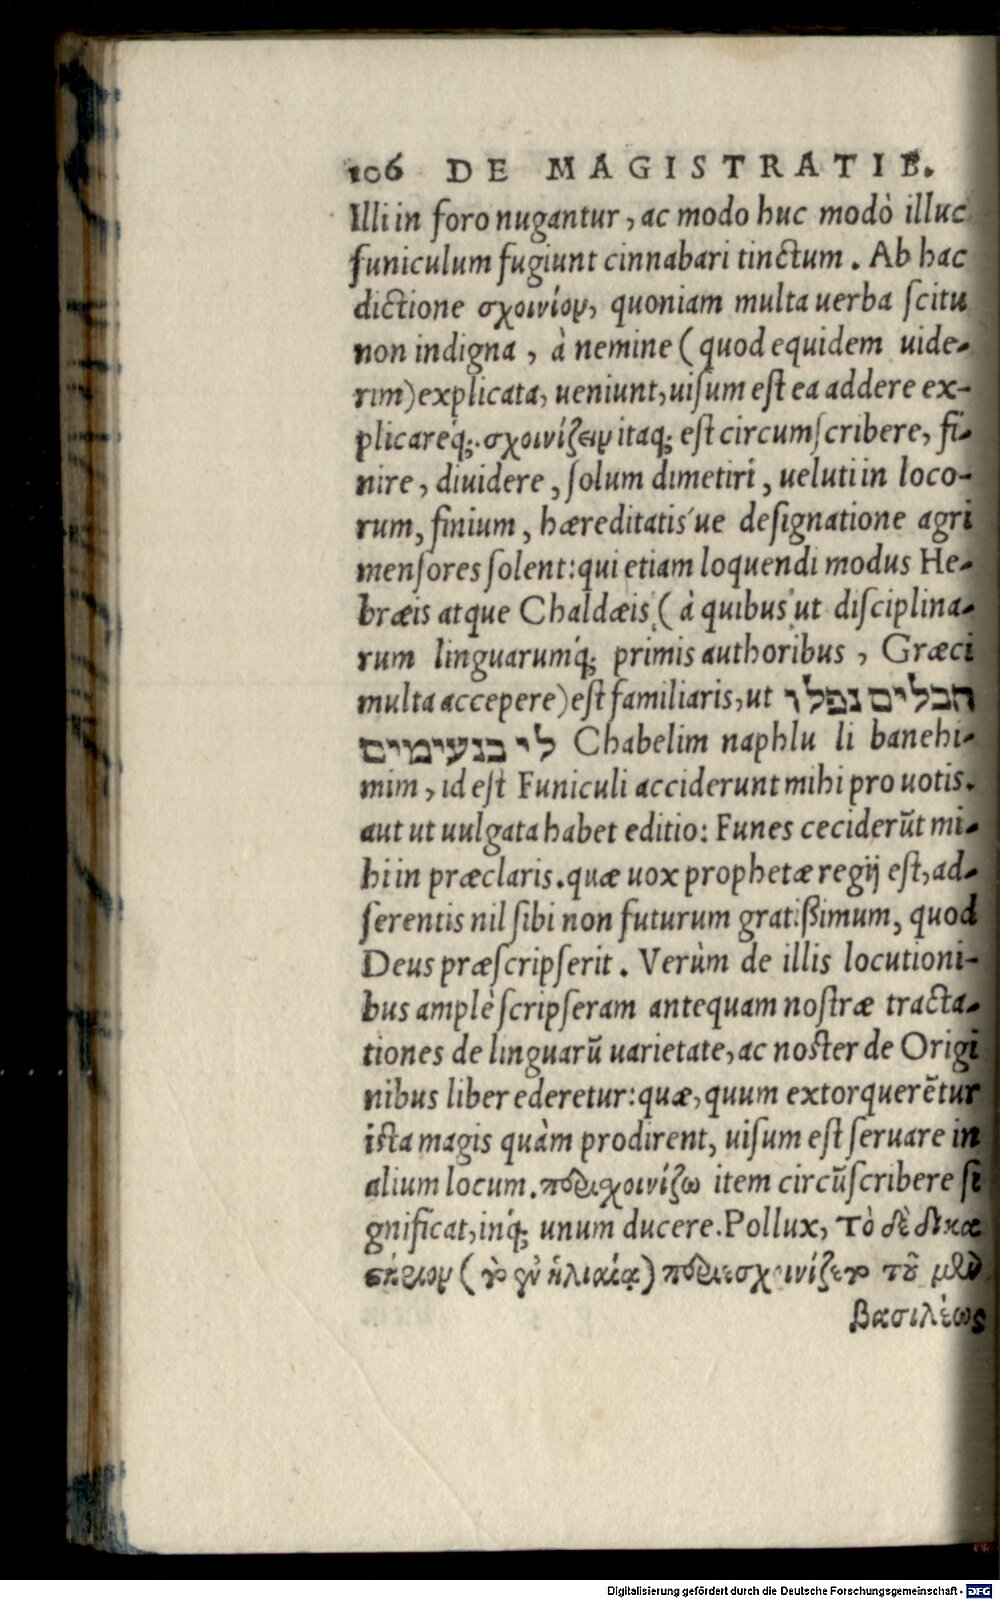 106 DE MAGISTRATIB.
Illi in foro nugantur, ac modo huc modò illuc
funiculum fugiunt cinnabari tinctum. Ab hac
dictione σχοινίον, quoniam multa uerba scitu
non indigna, à nemine (quod equidem uide-
rim) explicata, ueniunt, uisum est ea addere ex-
plicareq́;. σχοινίζειν itaq; est circumscribere, fi-
nire, diuidere, solum dimetiri, ueluti in loco-
rum, finium, hæreditatis´ue designatione agri
mensores solent: qui etiam loquendi modus He-
bræis atque Chaldæis, (à quibus ut disciplina-
rum linguarumq́; primis authoribus, Græci
multa accepere) est familiaris, ut חבלים נפלו
לי בנעימים Chabelim naphlu li banehi-
mim, id est Funiculi acciderunt mihi pro uotis.
aut ut uulgata habet editio: Funes ceciderũt mi-
hi in præclaris. quæ uox prophetæ regij est, ad-
serentis nil sibi non futurum gratißimum, quod
Deus præscripserit. Verùm de illis locutioni-
bus amplè scripseram antequam nostræ tracta-
tiones de linguarũ uarietate, ac noster de Origi
nibus liber ederetur: quæ, quum extorquerẽtur
ista magis quàm prodirent, uisum est seruare in
alium locum. περιχοινίζω item circũscribere si
gnificat, inq́; unum ducere. Pollux, Τὸ δὲ δικα
σήριον (τὸ ἐν ἡλιαίᾳ) περιεσχοινίζετο τοῦ μὲν
βασιλέως
Digitalisierung gefördert durch die Deutsche Forschungsgemeinschaft - DFG